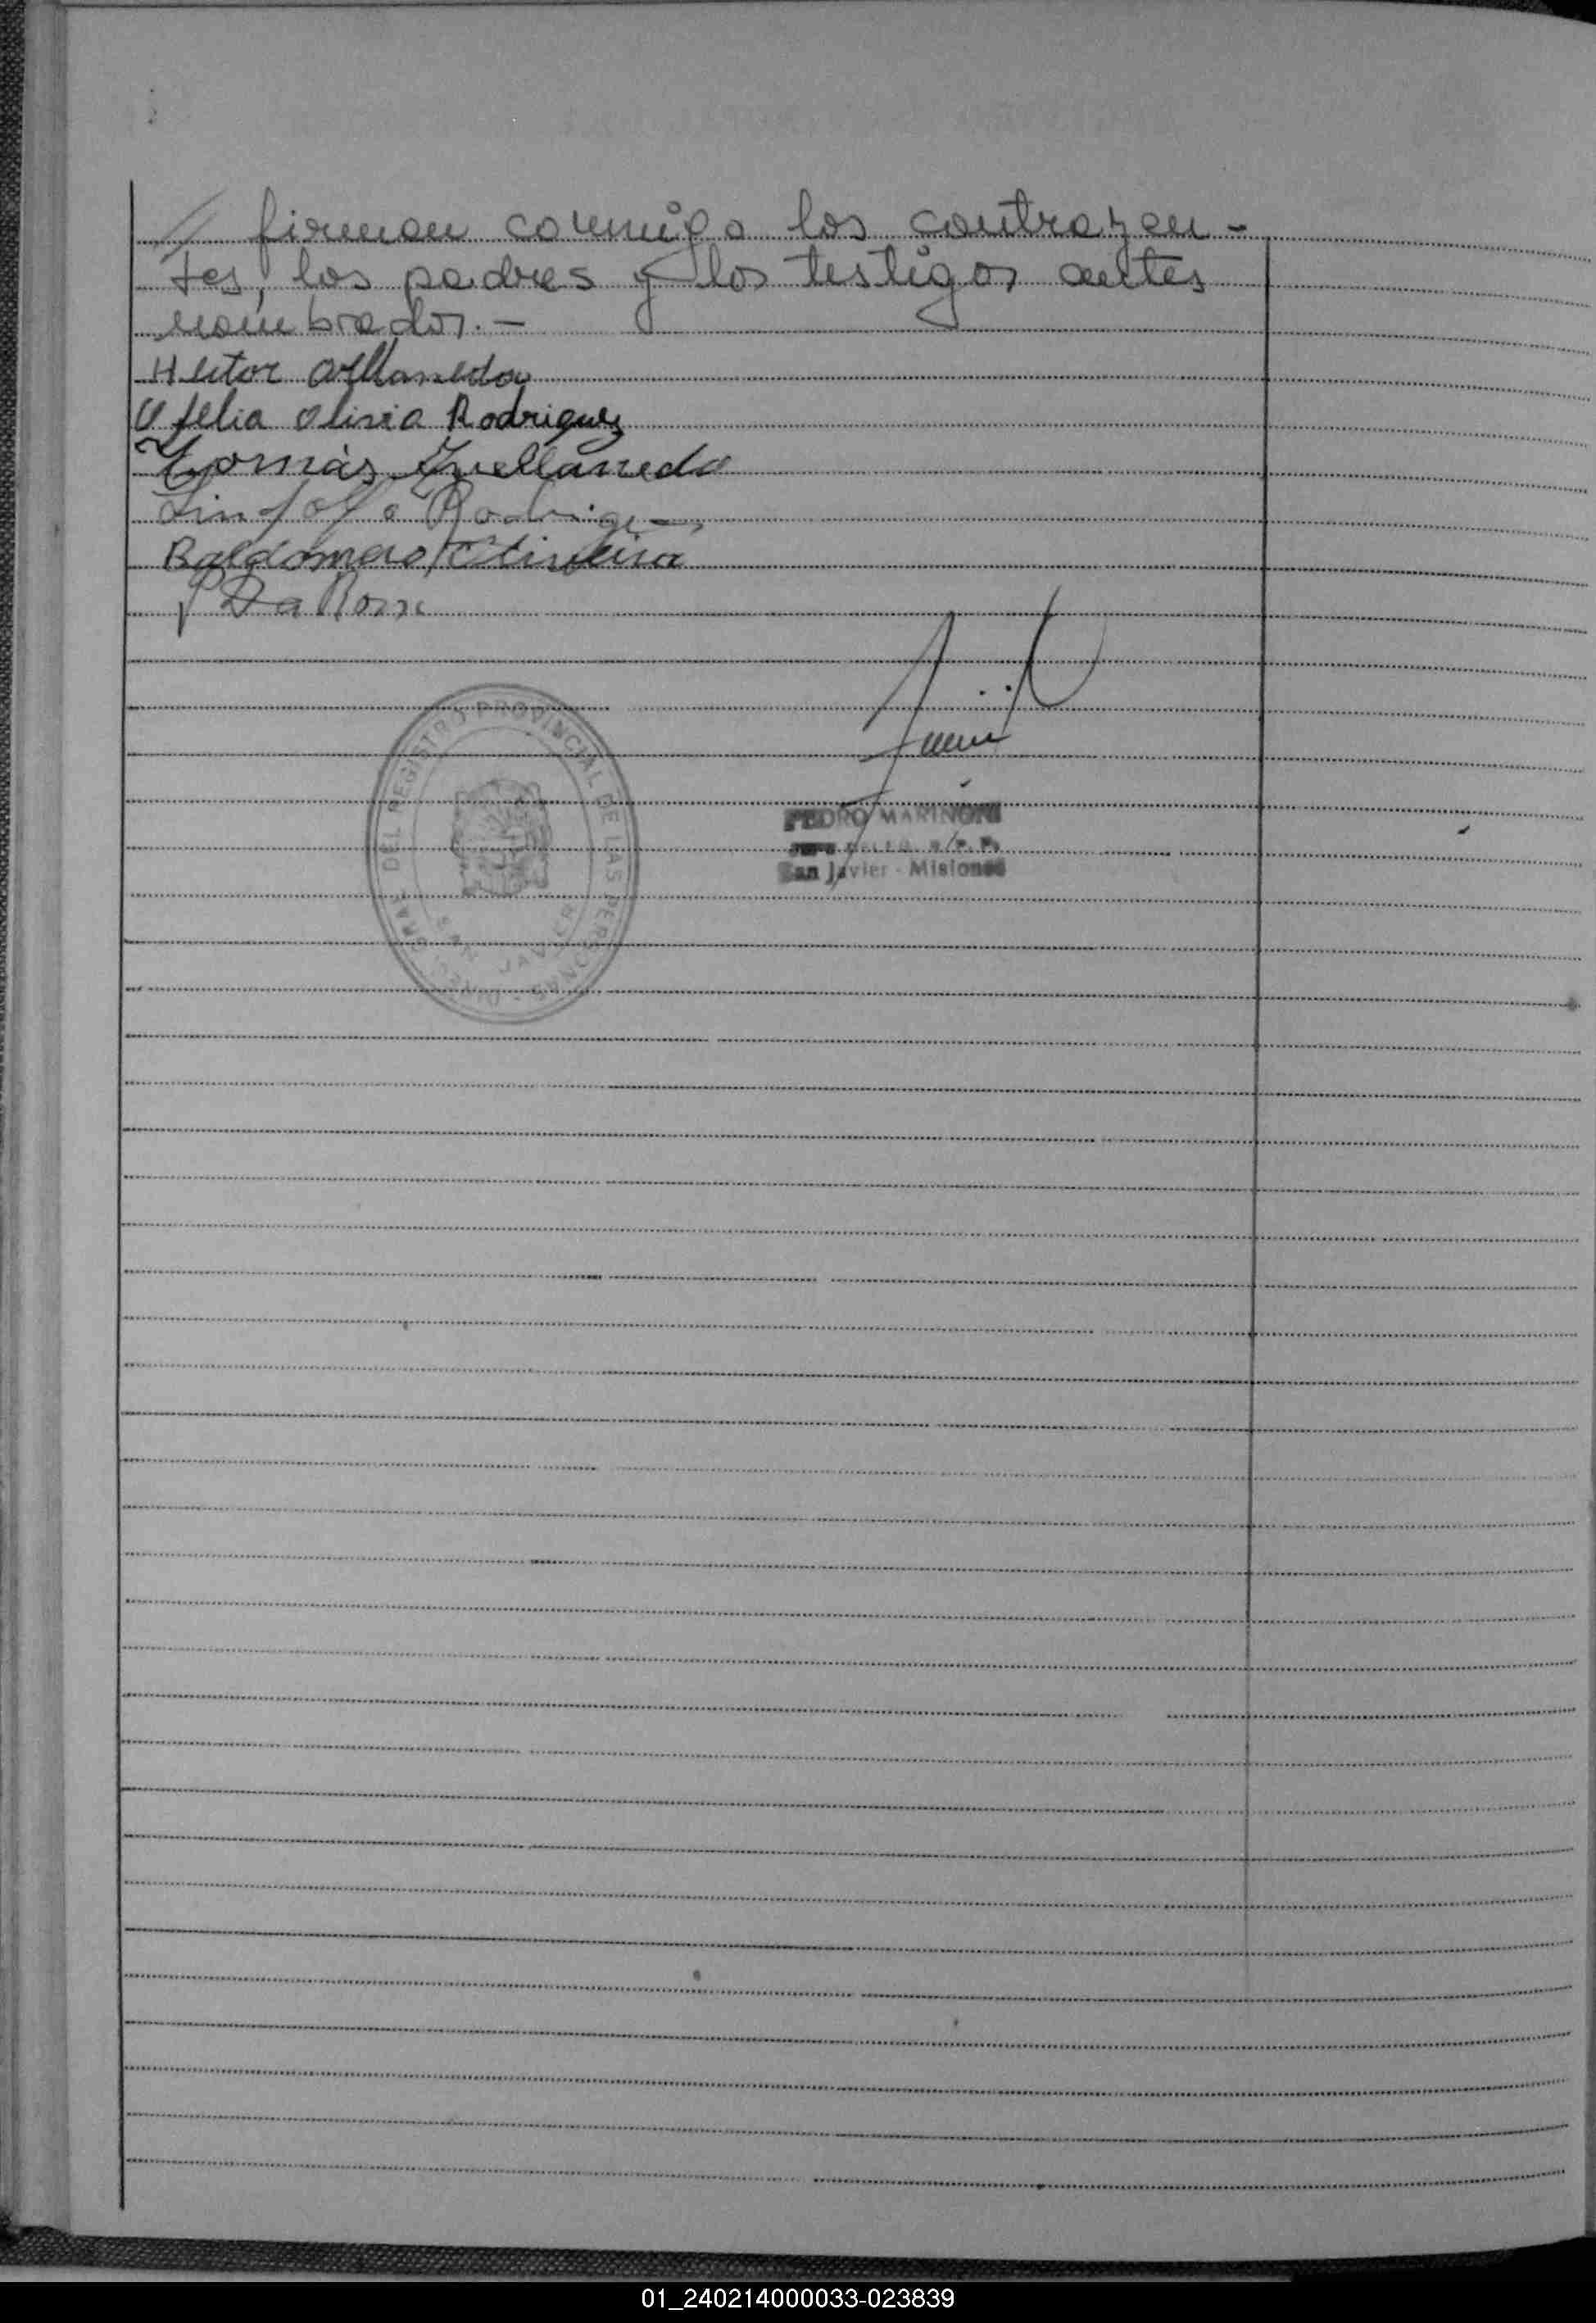 // firman conmigo los contrayen-
tes, los padres y los testigos antes
nombrados.-
Hector Avellaneda
Ofelia Olivia Rodriguez
Tomás Avellaneda
Rodriguez
Baldomero Oliveira
Da Rosa
DEL REGISTRO PROVINCIAL DE LAS PERSONAS
SAN JAVIER
PEDRO MARINONI
San Javier - Misiones
01_240214000033-023839